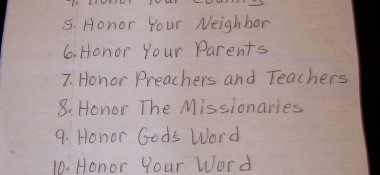 5. Honor Your Neighbor
6. Honor Your Parents
7. Honor Preachers and Teachers
8. Honor The Missionaries
9. Honor Gods Word
10. Honor Your Word